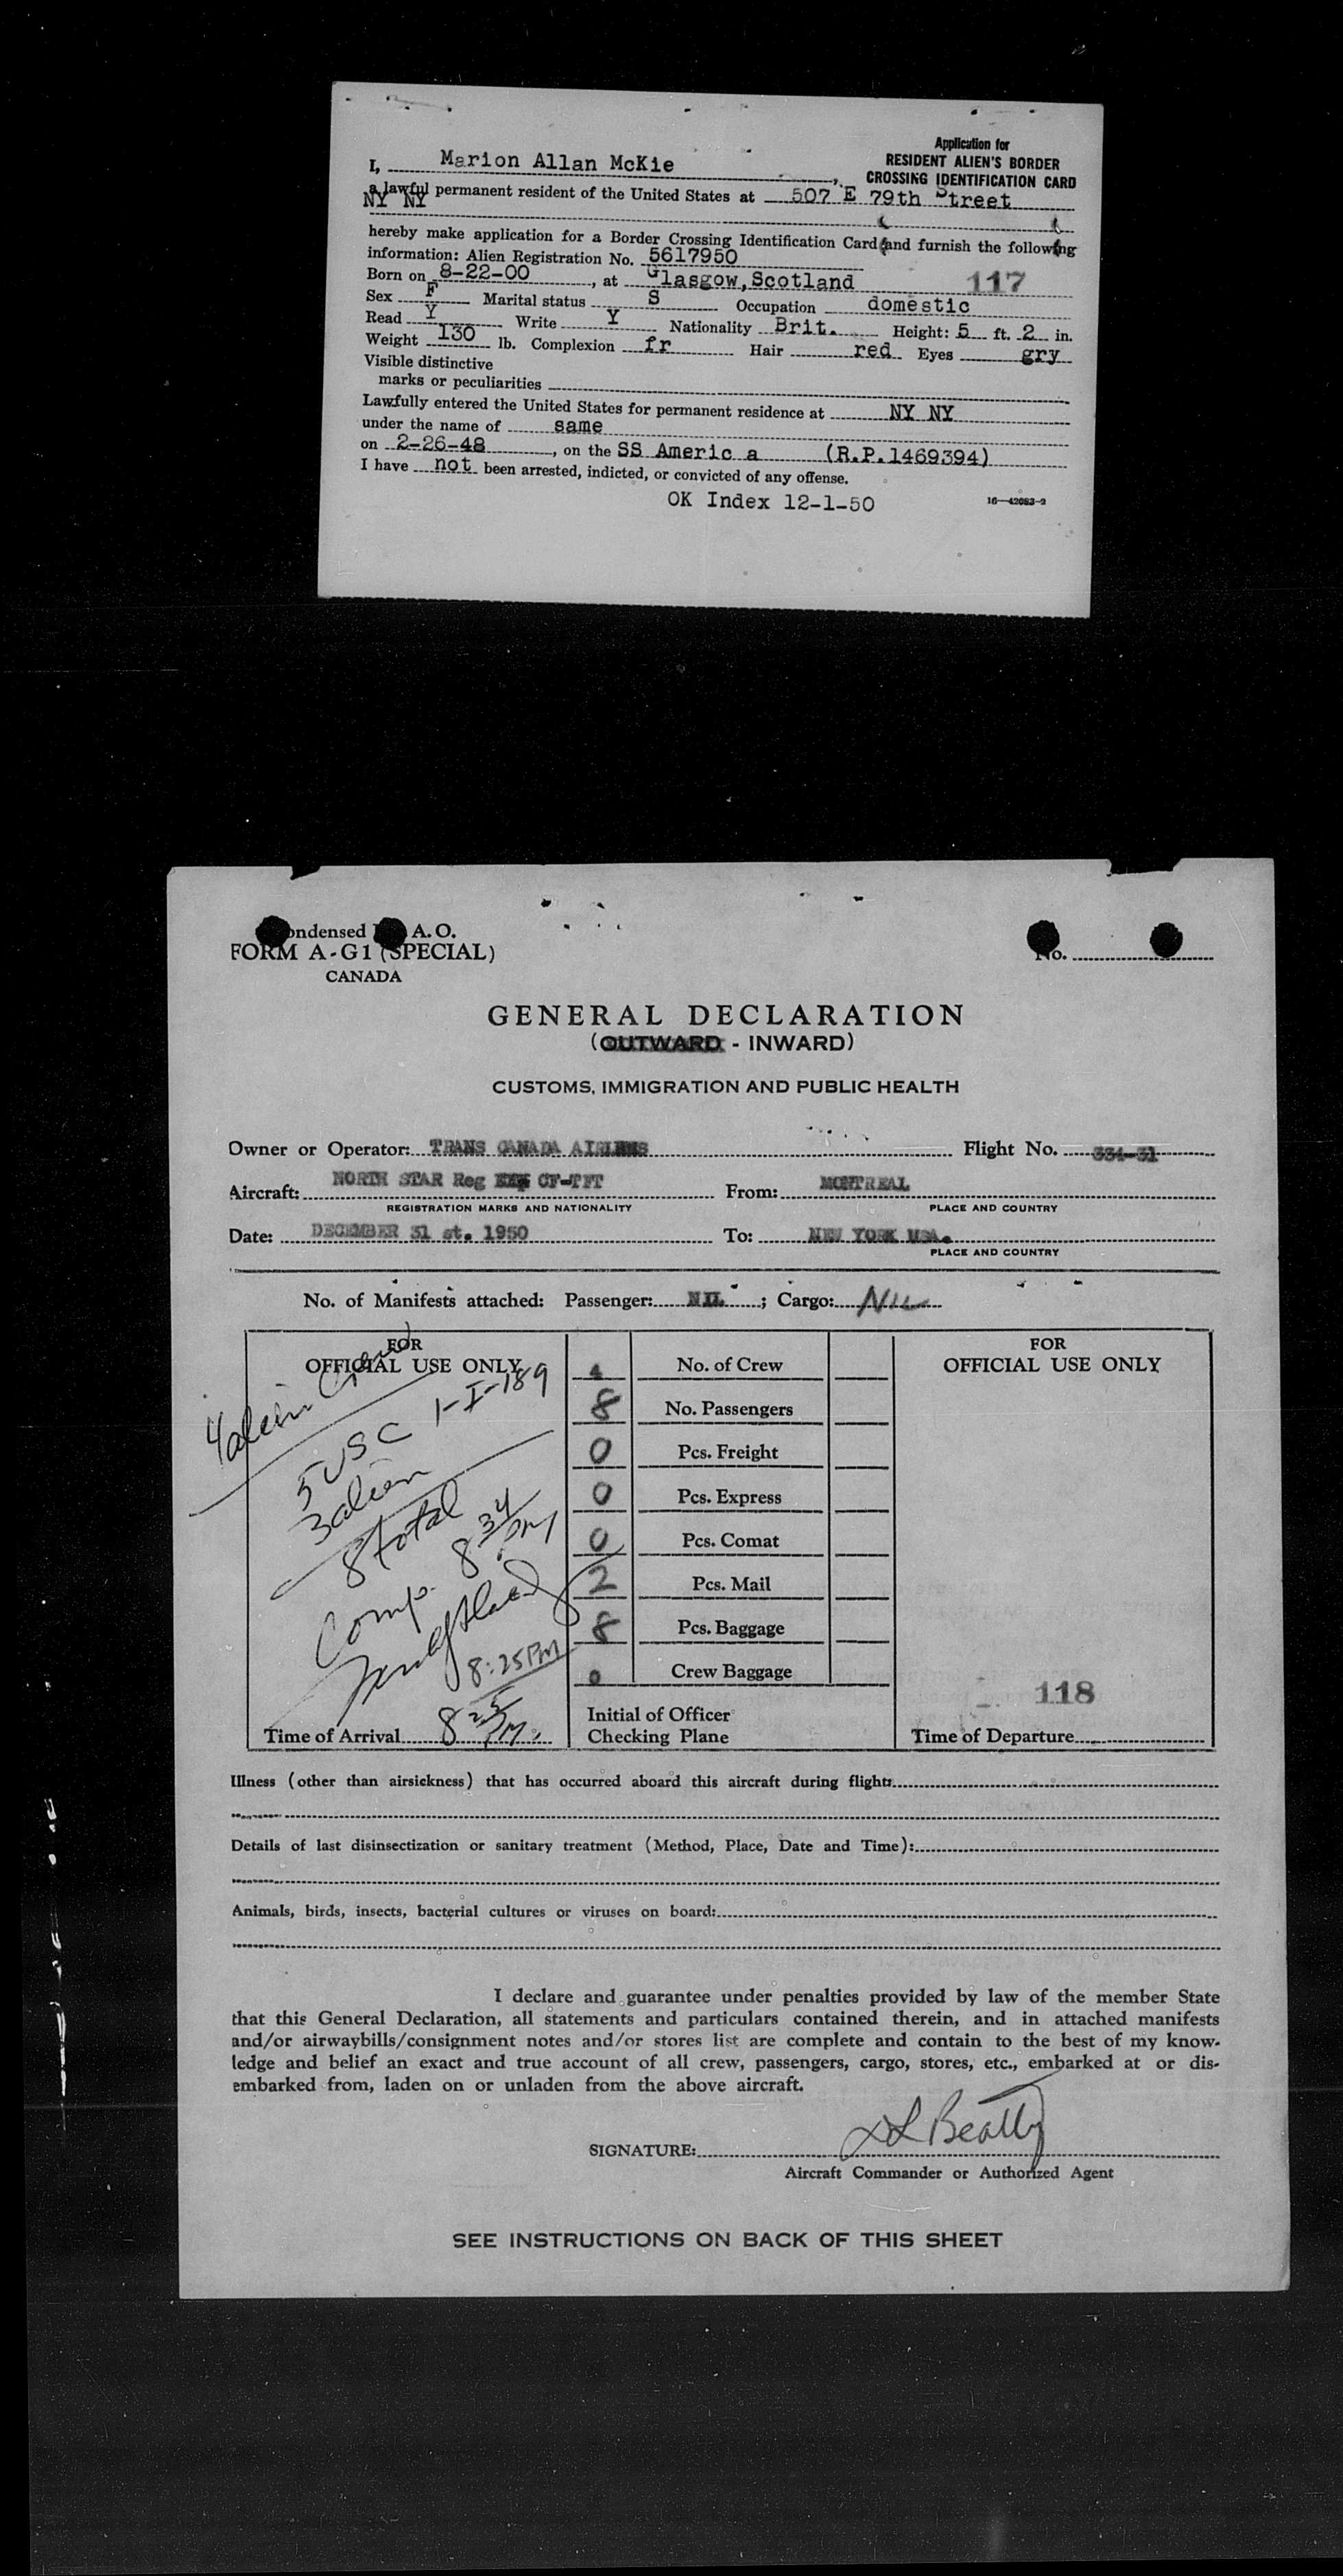 Application for
RESIDENT ALIEN'S BORDER
CROSSING IDENTIFICATION CARD
I, Marion Allan McKie,
a lawful permanent resident of the United States at 507 E 79th Street
NY NY
hereby make application for a Border Crossing Identification Card and furnish the following
information: Alien Registration No. 5617950
Born on 8-22-00, at Glasgow, Scotland 117
Sex F Marital status S Occupation domestic
Read Y Write Y Nationality Brit. Height: 5 ft. 2 in.
Weight 130 lb. Complexion fr Hair red Eyes gry
Visible distinctive
marks or peculiarities
Lawfully entered the United States for permanent residence at NY NY
under the name of same
on 2-26-48, on the SS Americ a (R.P.1469394)
I have not been arrested, indicted, or convicted of any offense.
OK Index 12-1-50 16—42083-2
ondensed A. O.
FORM A-G1 (SPECIAL)
CANADA
No.
GENERAL DECLARATION
(OUTWARD - INWARD)
CUSTOMS, IMMIGRATION AND PUBLIC HEALTH
Owner or Operator: TRANS CANADA Flight No. 334-31
Aircraft: NORTH STAR Reg CF-TFT From: MONTREAL
REGISTRATION MARKS AND NATIONALITY PLACE AND COUNTRY
Date: DECEMBER 31 st. 1950 To: NEW YORK USA.
PLACE AND COUNTRY
No. of Manifests attached: Passenger: NIL; Cargo: NIL
FOR
OFFICIAL USE ONLY
4 alien Crew
5 USC 1-I-189
3 alien
8 total
Comp. 8 34 PM
8:25 PM
Time of Arrival 8 25 PM.
4 No. of Crew
8 No. Passengers
0 Pcs. Freight
0 Pcs. Express
0 Pcs. Comat
2 Pcs. Mail
8 Pcs. Baggage
0 Crew Baggage
Initial of Officer
Checking Plane
FOR
OFFICIAL USE ONLY
118
Time of Departure
Illness (other than airsickness) that has occurred aboard this aircraft during flight:
Details of last disinsectization or sanitary treatment (Method, Place, Date and Time):
Animals, birds, insects, bacterial cultures or viruses on board:
I declare and guarantee under penalties provided by law of the member State
that this General Declaration, all statements and particulars contained therein, and in attached manifests
and/or airwaybills/consignment notes and/or stores list are complete and contain to the best of my know-
ledge and belief an exact and true account of all crew, passengers, cargo, stores, etc., embarked at or dis-
embarked from, laden on or unladen from the above aircraft.
SIGNATURE: Beatty
Aircraft Commander or Authorized Agent
SEE INSTRUCTIONS ON BACK OF THIS SHEET